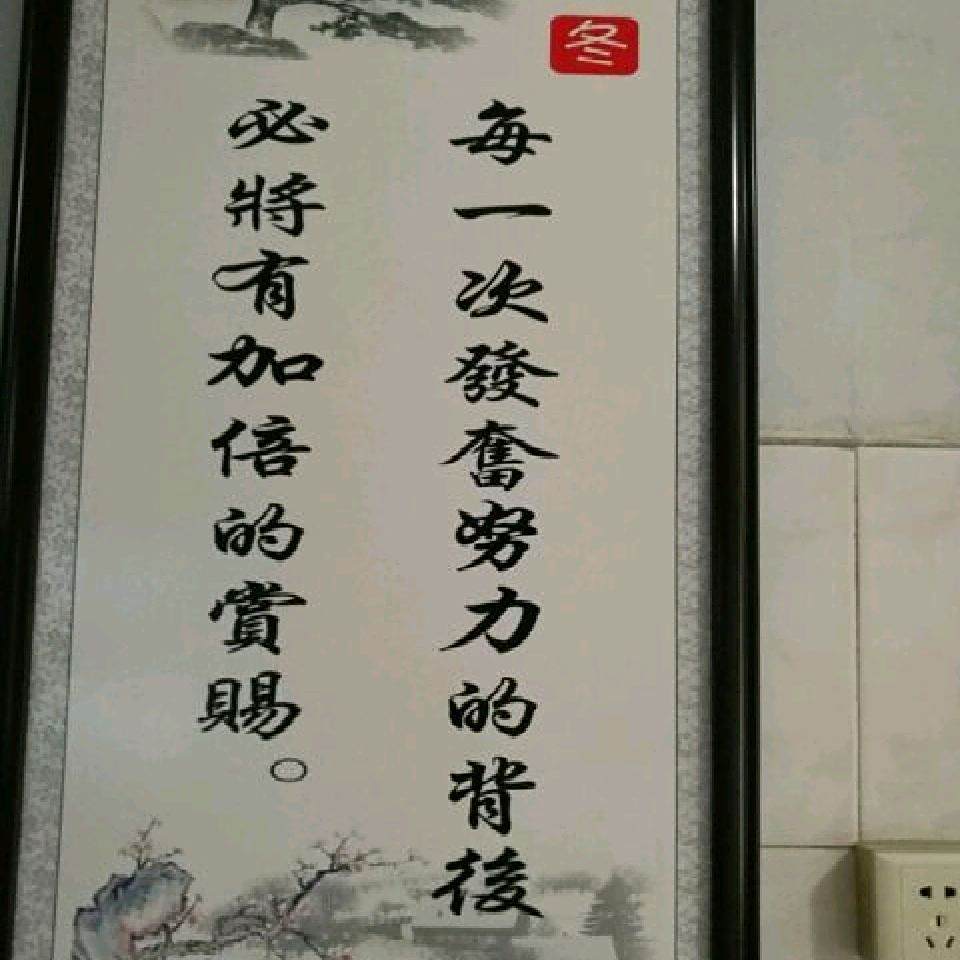 冬
每一次發奮努力的背後
必將有加倍的賞賜。